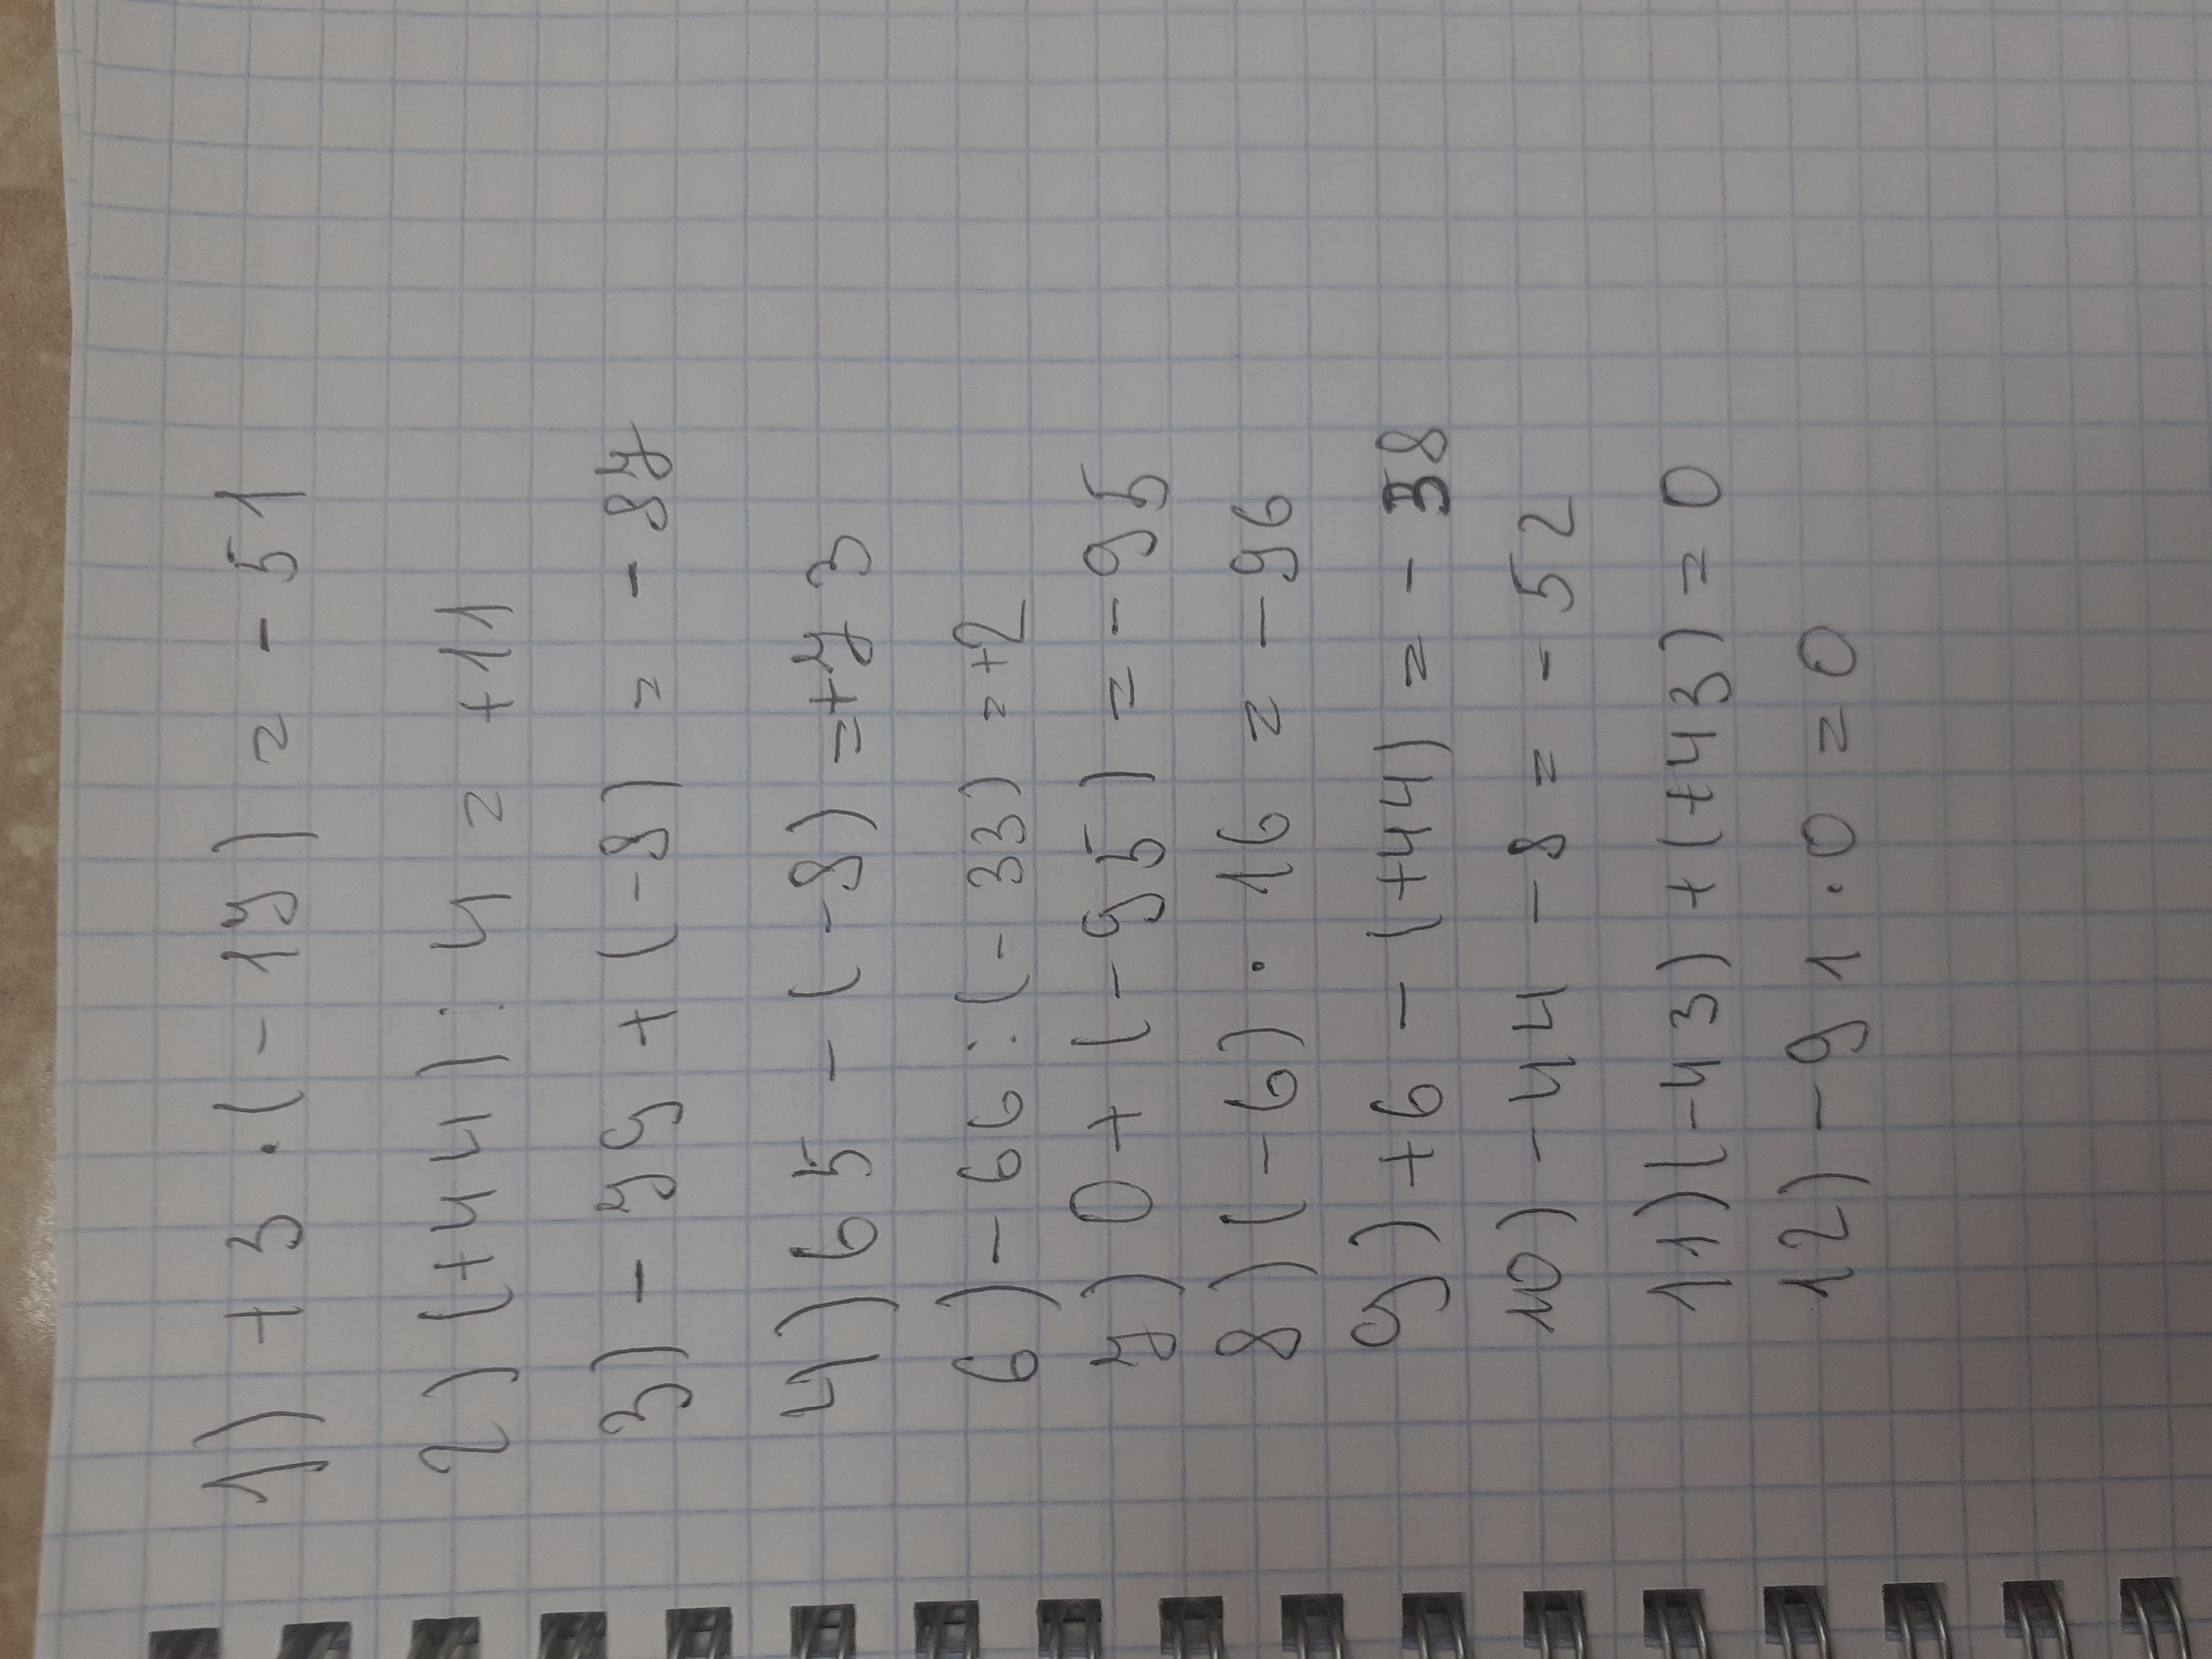 1) +3 · (- 17) = - 51
2) (+44) : 4 = +11
3) - 79 + (-8) = - 87
4) 65 - (-8) = +73
6) - 66 : (- 33) = +2
7) 0 + (-95) = - 95
8) (-6) · 16 = - 96
9) +6 - (+44) = - 38
10) -44 - 8 = - 52
11) (-43) + (+43) = 0
12) - 91 · 0 = 0